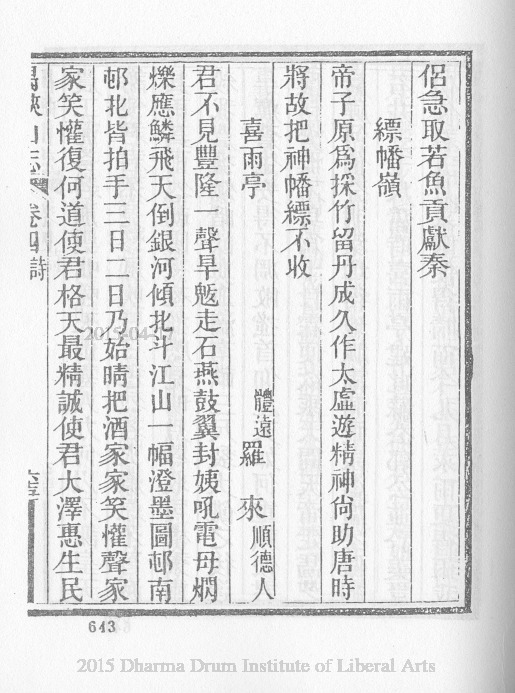 侶急取若魚貢獻秦
縹幡嶺
帝子原爲採竹留丹成久作太虛遊精神尙助唐時
將故把神幡縹不收
喜雨亭
體遠羅來順德人
君不見豐隆一聲旱魃走石燕鼓翼封姨吼電母燜
爍應鱗飛天倒銀河傾北斗江山一幅澄墨圖邨南
邨北皆拍手三日二日乃始晴把酒家家笑懽聲家
家笑懽復何道使君格天最精誠使君大澤惠生民
峽山志卷四詩
2015-04
643
2015 Dharma Drum Institute of Liberal Arts